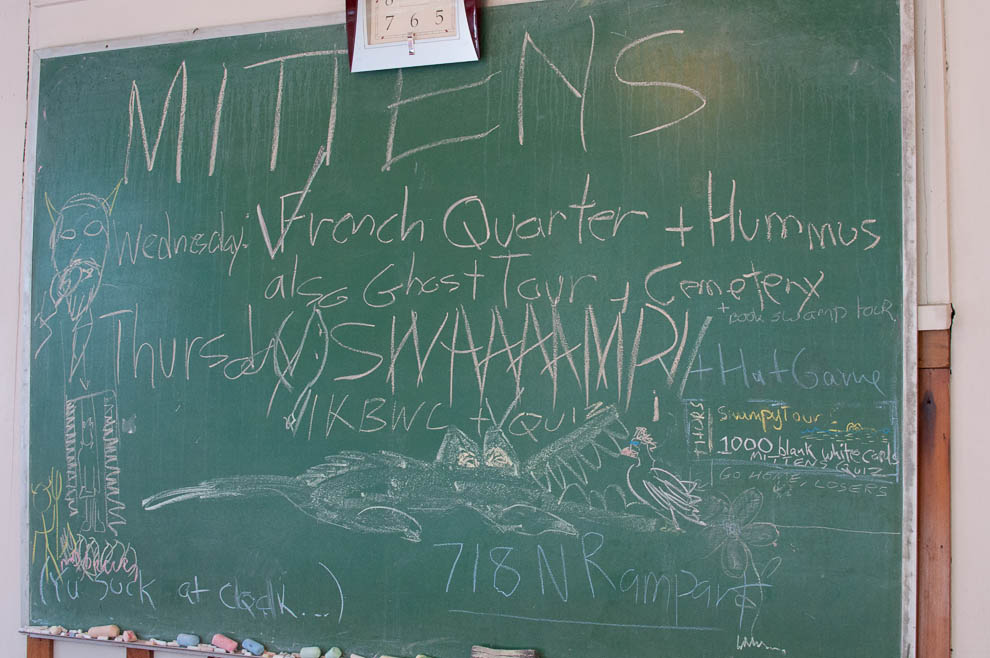 7 6 5
MITTENS
Wednesday: French Quarter + Hummus
also Ghost Tour, Cemetery
+ book swamp tour
Thursday(!) SWAAAAMP!
+ Hat Game
1KBWC + Quiz
THURS
SwampyTour
1000 blank white cards
MITTENS QUIZ
GO HOME, LOSERS
718 N Rampart
(Yu suck at chalk...)